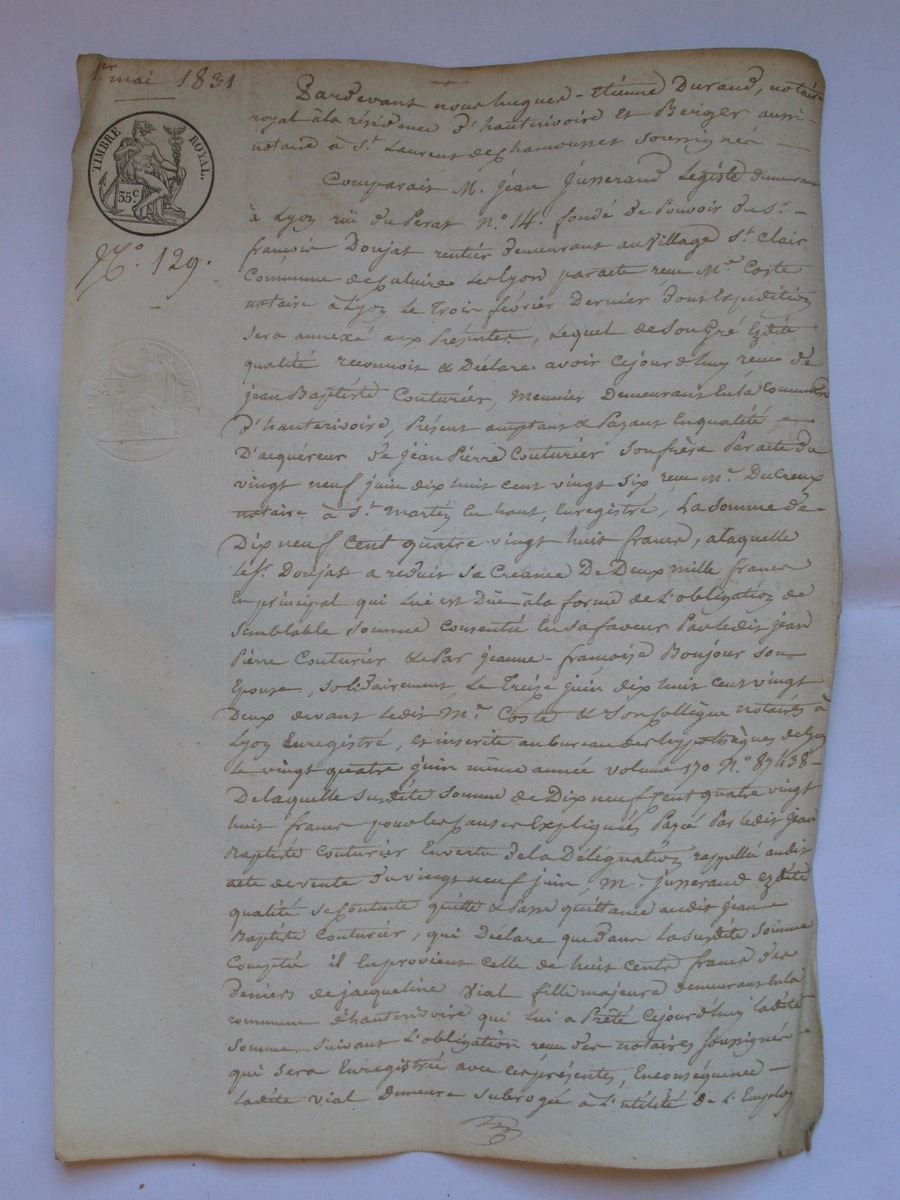 1er mai 1831
TIMBRE ROYAL.
35c
No. 129.
Pardevant nous hugues-étienne Durand, notaire
royal à la résidence d'hauterivoire et Berger aussi
notaire à St. Laurent de chamousset soussigné
Comparait M. jean Jusserand Légiste demeurant
à Lyon rüe du Perat No. 14. fondé de Pouvoir du Sr.
françois Doujat rentier demeurant au village St. Clair
Commune de Caluire Les lyon par acte recu Me. Coste
notaire à Lyon Le Trois février Dernier dont Expédition
sera annexé aux Présentes, Lequel de Son Gré Ezdite
qualité reconnoit & Déclare avoir cejourd'huy recu de
jean Baptiste Couturier, Meunier Demeurant En la Commune
d'hauterivoire, Présent acceptant & Payant En qualité
D'acquéreur de jean Pierre Couturier Son frère Par acte du
vingt neuf juin dix huit cent vingt six recu Me. Ducreux
notaire à St. Martin En haut, Enregistré, La Somme de
Dix neuf Cent quatre vingt huit francs, a laquelle
le Sr. Doujat a reduit sa Créance De Deux mille francs
En principal qui Lui est Düe à la forme de L'obligation de
Semblable Somme Consentie En sa faveur Par ledit jean
Pierre Couturier & Par jeanne-françoise Bonjour son
Epouse, Solidairement, Le Treize juin dix huit cent vingt
Deux devant ledit Me. Coste & Son Collègue notaires à
Lyon Enregistré, et inscrite au bureau des hypothèques de Lyon
Le vingt quatre juin même année volume 170 No. 87438
De laquelle Susdite Somme de Dix neuf Cent quatre vingt
huit francs pour les Causes Expliquées Payée Par ledit jean
Baptiste Couturier En vertu de la Délégation rappellée audit
acte de vente du vingt neuf juin, M. Jusserand Ezdite
qualité se Contente quitte & Passe quittance audit jean
Baptiste Couturier, qui Déclare que dans La Susdite Somme
Comptée il En provient Celle de huit Cents francs des
deniers de jacqueline Vial fille majeure demeurant En la
commune d'hauterivoire qui lui a Prêté Cejourd'huy Ladite
Somme Suivant L'obligation recu des notaires Soussigné
qui sera Enregistré avec Ces présentes, En conséquence
Ladite Vial Demeure Subrogée à L'utilité de L'Employ